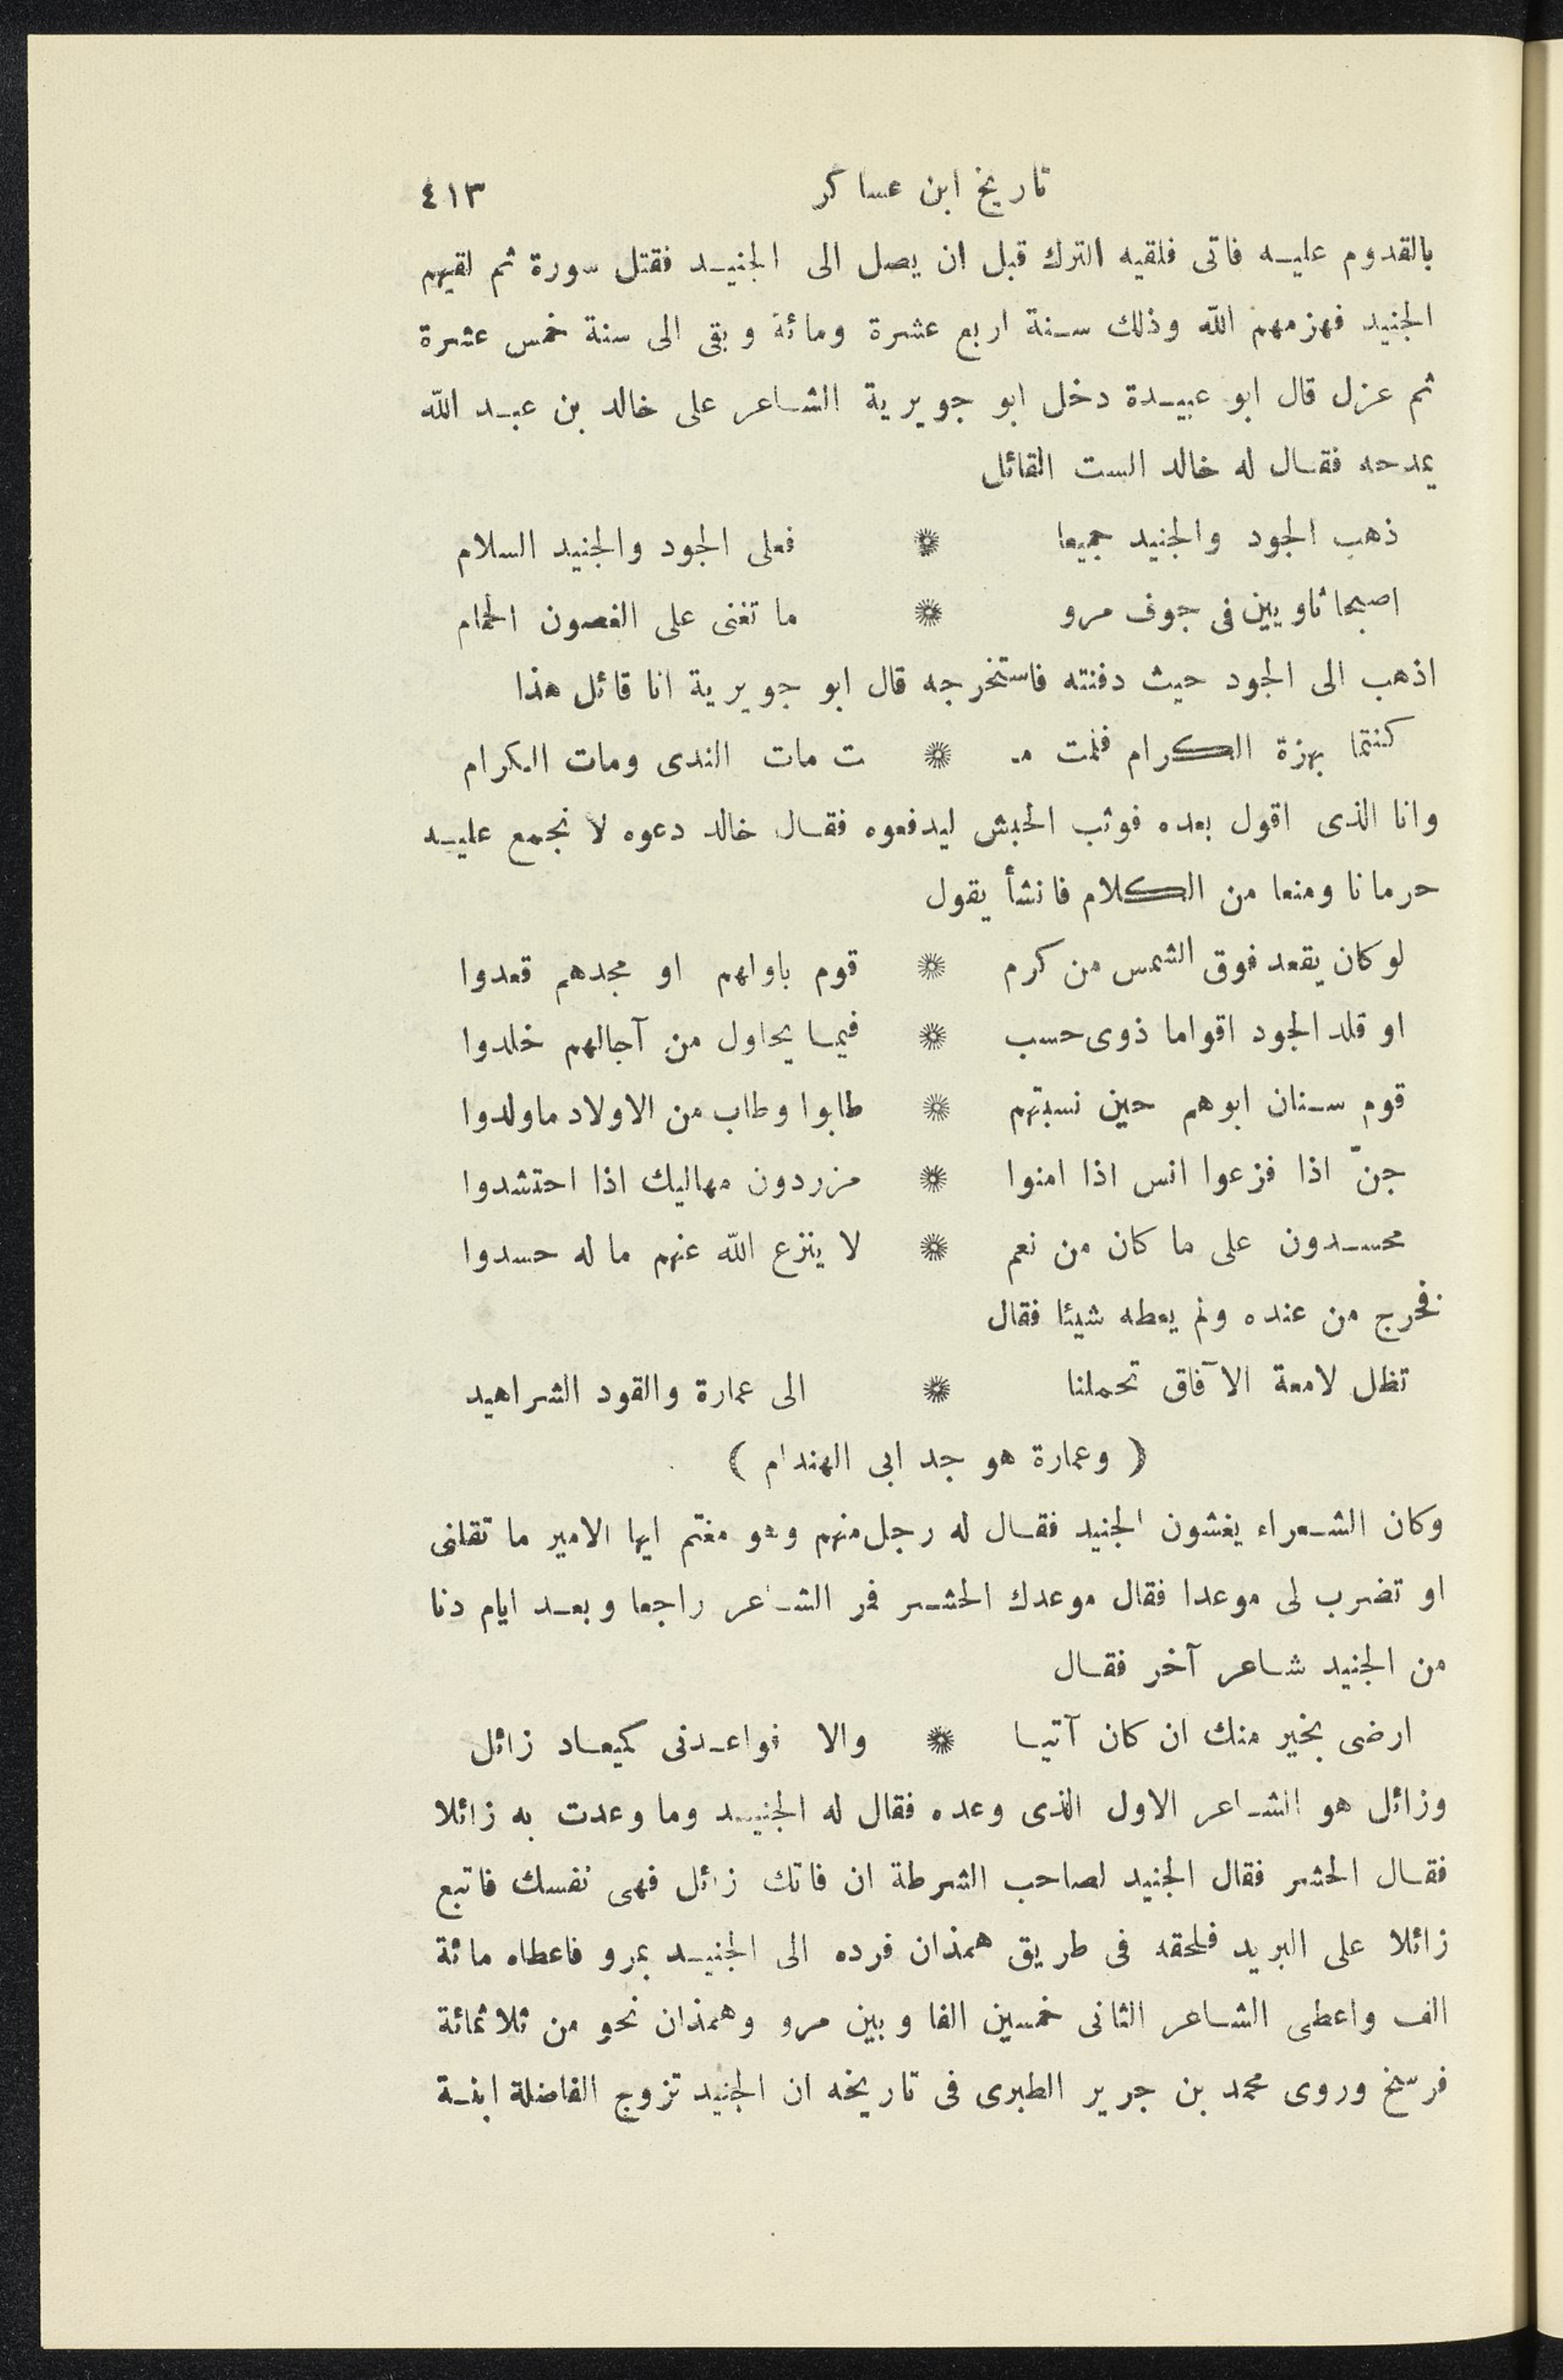 تاريخ ابن عساكر ٤١٣
بالقدوم عليه فاتى فلقيه الترك قبل ان يصل الى الجنيد فقتل سورة ثم لقيهم
الجنيد فهزمهم الله وذلك سنة اربع عشرة ومائة وبقى الى سنة خمس عشرة
ثم عزل قال ابو عبيدة دخل ابو جويرية الشاعر على خالد بن عبد الله
يمدحه فقال له خالد الست القائل
ذهب الجود والجنيد جميعا * فعلى الجود والجنيد السلام
اصبحا ثاويين فى جوف مرو * ما تغنى على الغصون الحمام
اذهب الى الجود حيث دفنته فاستخرجه قال ابو جويرية انا قائل هذا
كنتما بهزة الكرام فلمت مـ * ت مات الندى ومات الكرام
وانا الذى اقول بعده فوثب الحبش ليدفعوه فقال خالد دعوه لا نجمع عليه
حرمانا ومنعا من الكلام فانشأ يقول
لو كان يقعد فوق الشمس من كرم * قوم باولهم او مجدهم قعدوا
او قلد الجود اقواما ذوى حسب * فيما يحاول من آجالهم خلدوا
قوم سنان ابوهم حين نسبتهم * طابوا وطاب من الاولاد ماولدوا
جنّ اذا فزعوا انس اذا امنوا * مزردون مهاليك اذا احتشدوا
محسدون على ما كان من نعم * لا ينزع الله عنهم ما له حسدوا
فخرج من عنده ولم يعطه شيئا فقال
تظل لامعة الآفاق تحملنا * الى عمارة والقود الشراهيد
( وعمارة هو جد ابى الهندام )
وكان الشعراء يغشون الجنيد فقال له رجل منهم وهو مغتم ايها الامير ما تقلنى
او تضرب لى موعدا فقال موعدك الحشر فمر الشاعر راجعا وبعد ايام دنا
من الجنيد شاعر آخر فقال
ارضى بخير منك ان كان آتيا * والا فواعدنى كميعاد زائل
وزائل هو الشاعر الاول الذى وعده فقال له الجنيد وما وعدت به زائلا
فقال الحشر فقال الجنيد لصاحب الشرطة ان فاتك زائل فهى نفسك فاتبع
زائلا على البريد فلحقه فى طريق همذان فرده الى الجنيد بمرو فاعطاه مائة
الف واعطى الشاعر الثانى خمسين الفا وبين مرو وهمذان نحو من ثلاثمائة
فرسخ وروى محمد بن جرير الطبرى فى تاريخه ان الجنيد تزوج الفاضلة ابنة